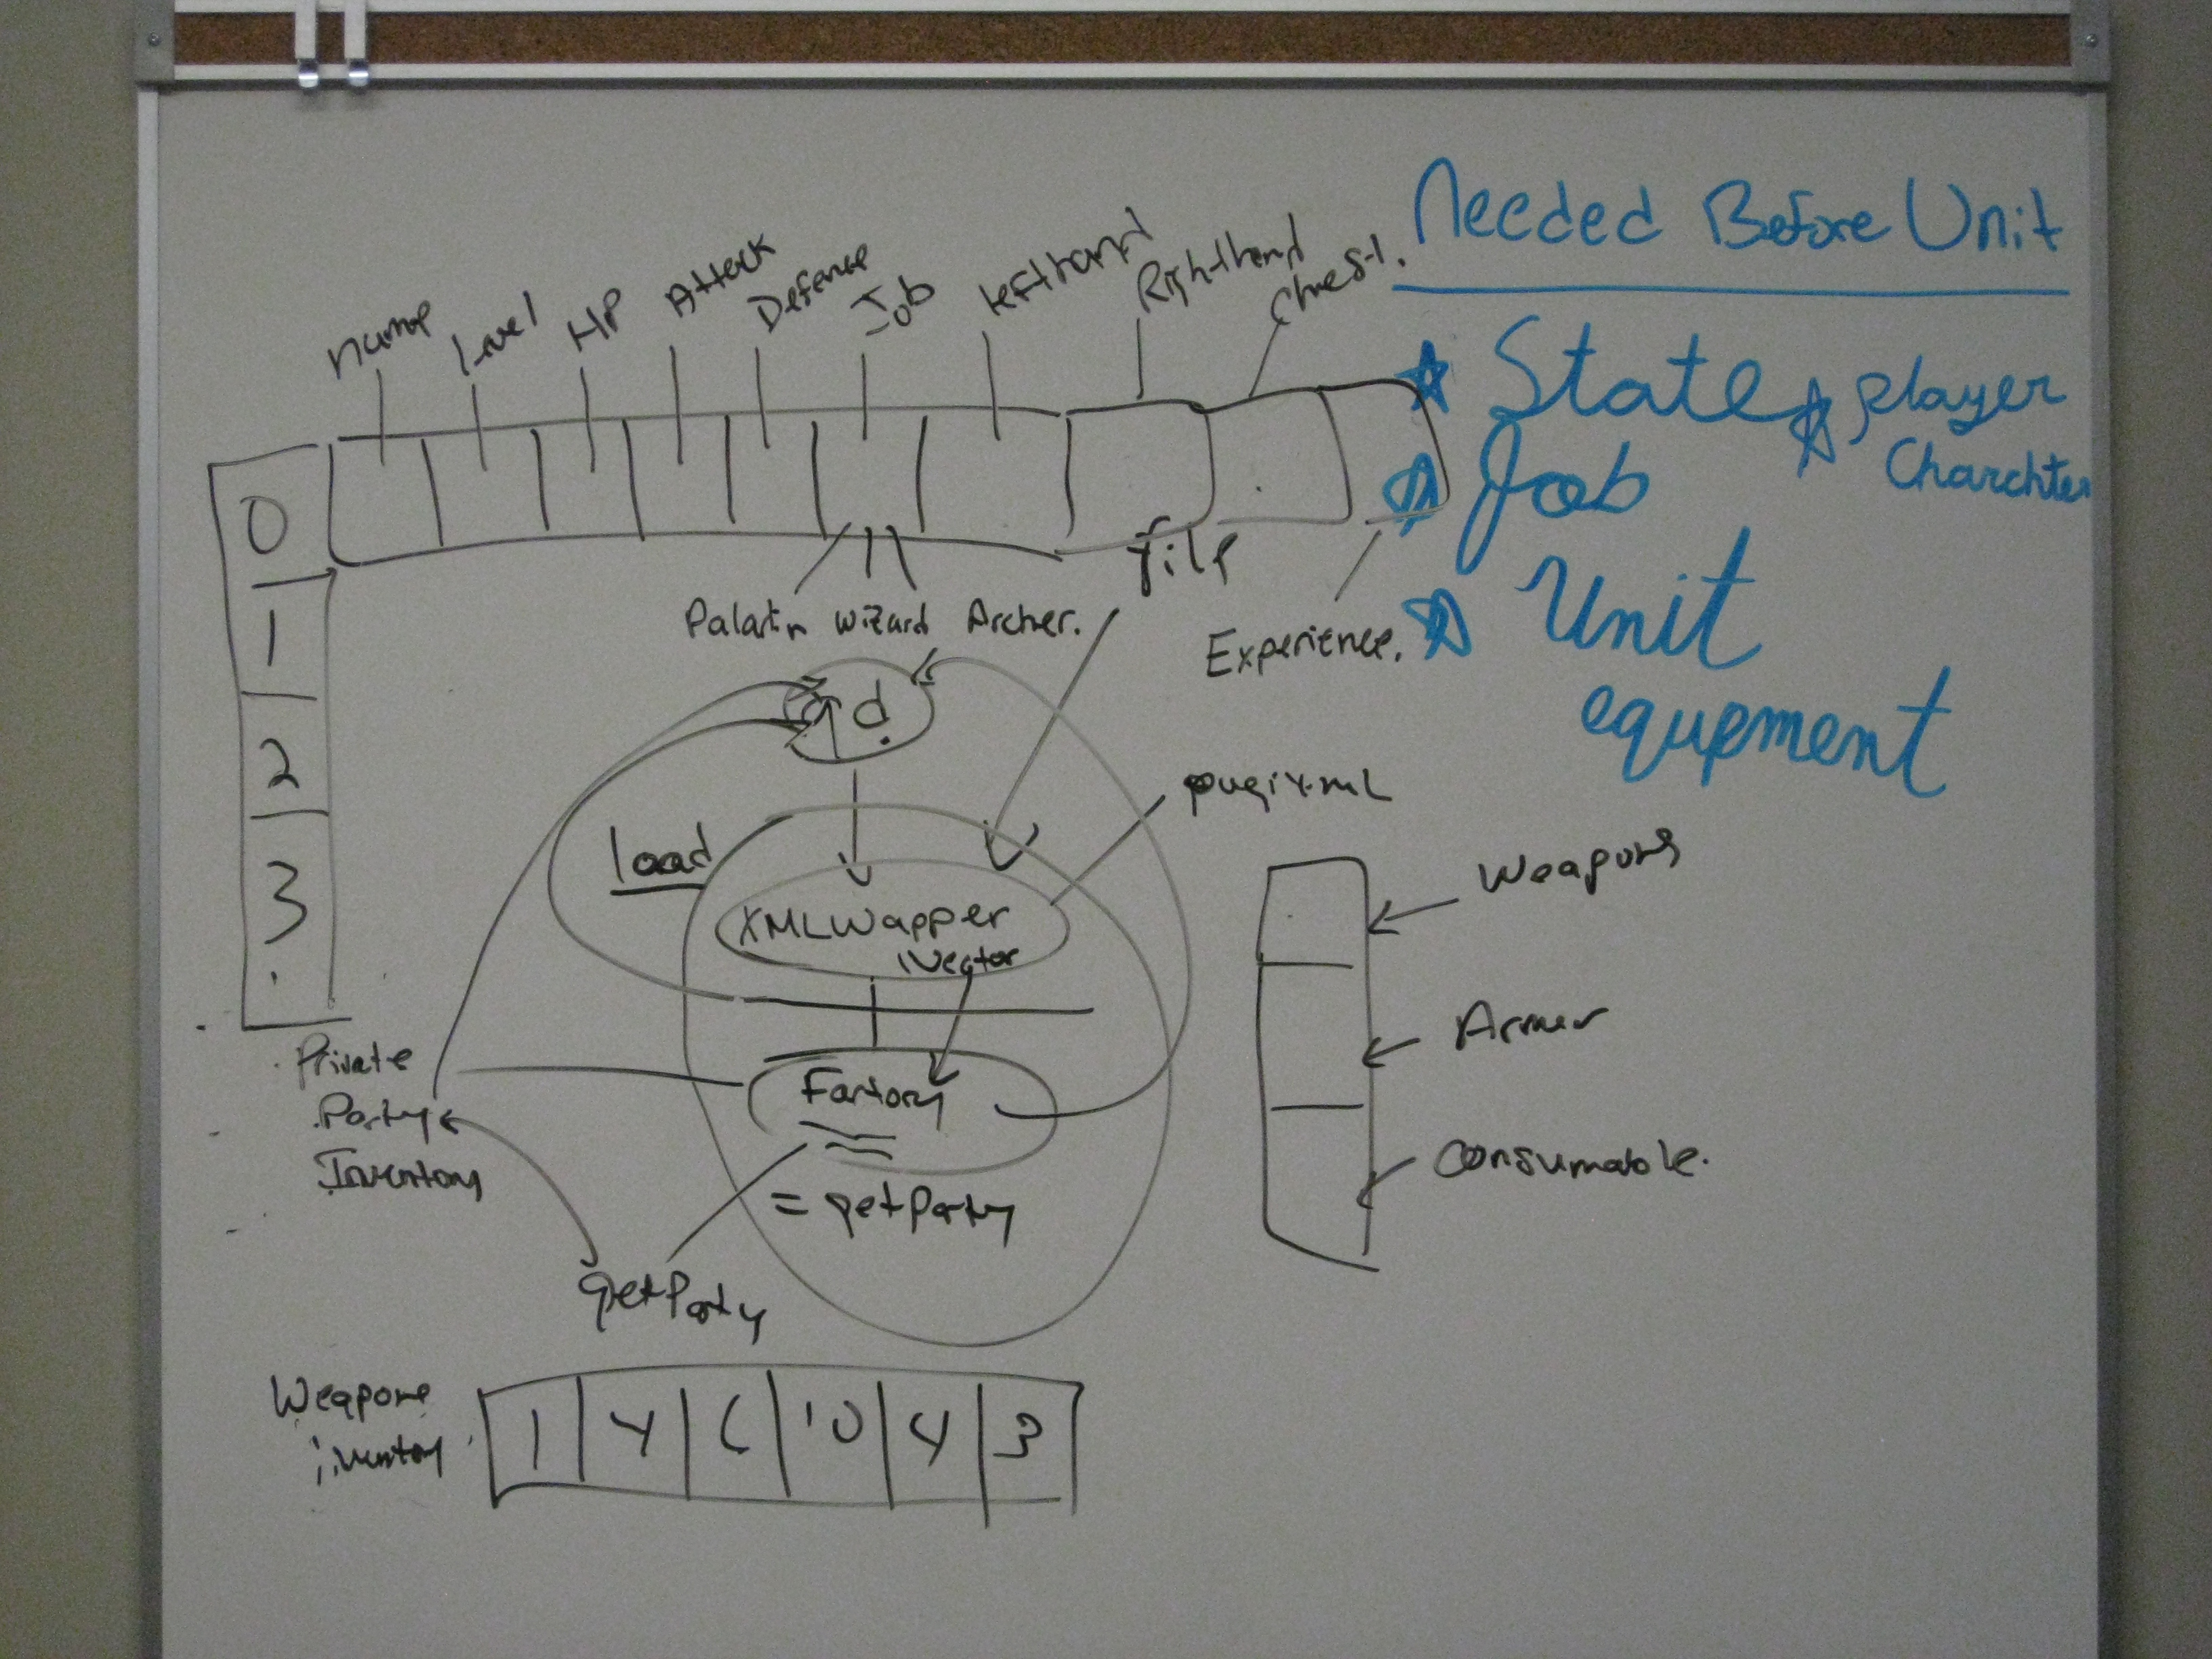 Needed Before Unit
State
player
Charchter
Job
Unit
equpment
Name
Level
HP
Attack
Defense
Job
lefthand
Righthand
Chest.
0
1
2
3
file
Paladin Wizard Archer.
Experience.
load
pugixml
XMLWapper
Vector
Factory
= getParty
getParty
Private
Party
Inventory
Weapons
Armor
Consumable.
Weapons
inventory
1 4 6 10 4 3